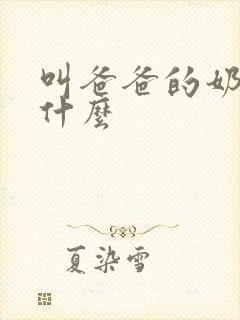 叫爸爸的奶
什麼
夏染雪